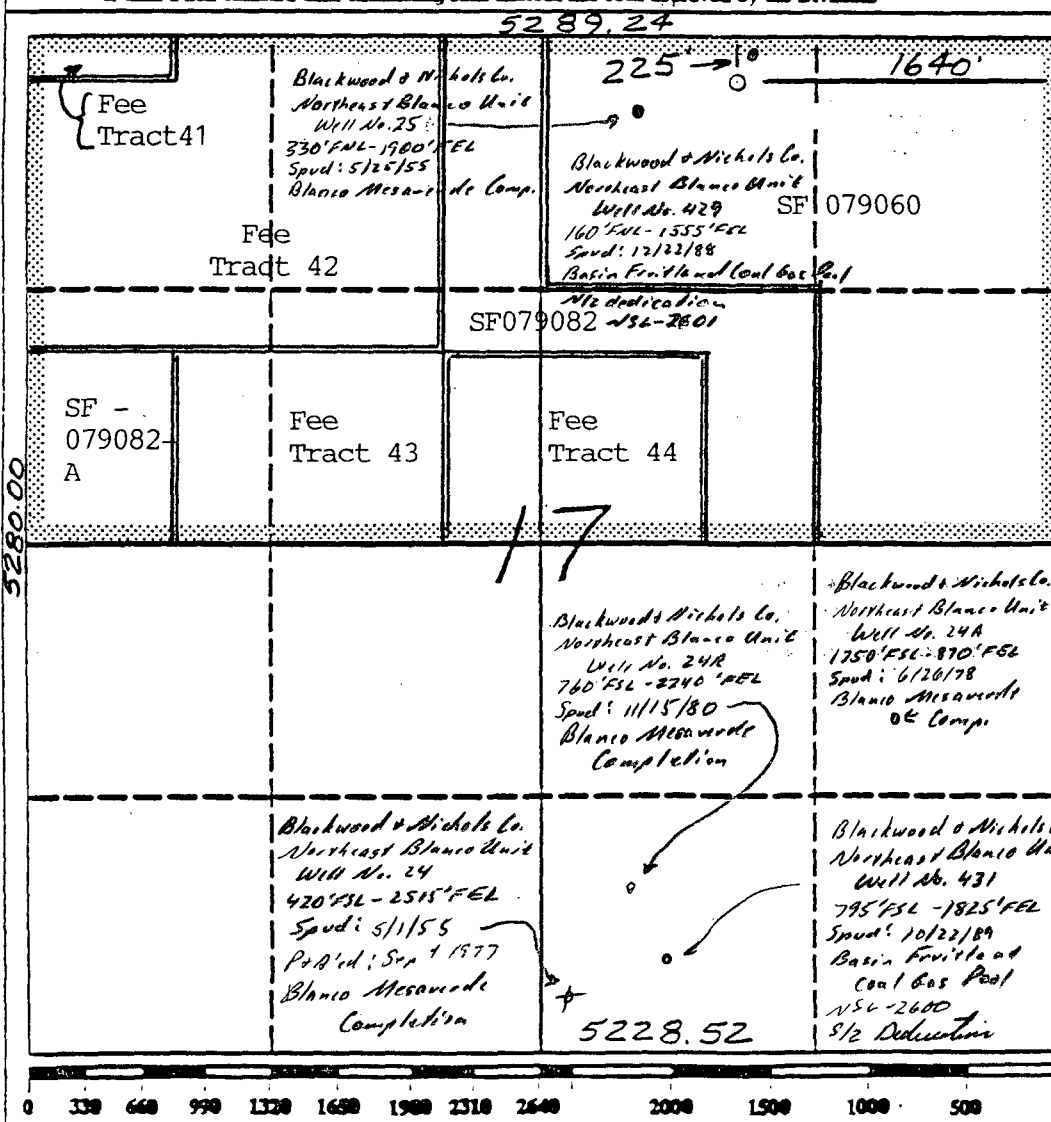 5289.24
225'
1640'
Fee
Tract 41
Blackwood & Nichols Co.
Northeast Blanco Unit
Well No. 25
330'FNL-1900'FEL
Spud: 5/25/55
Blanco Mesaverde Comp.
Blackwood & Nichols Co.
Northeast Blanco Unit
Well No. 429
160'FNL-1555'FEL
Spud: 12/22/88
Basin Fruitland Coal Gas Pool
N/2 dedication
NSL-2601
SF 079060
Fee
Tract 42
SF079082
SF -
079082-
A
Fee
Tract 43
Fee
Tract 44
5280.00
17
Blackwood & Nichols Co.
Northeast Blanco Unit
Well No. 24R
760'FSL-2240'FEL
Spud: 11/15/80
Blanco Mesaverde
Completion
Blackwood & Nichols Co.
Northeast Blanco Unit
Well No. 24A
1750'FSL-870'FEL
Spud: 6/26/78
Blanco Mesaverde
Comp.
Blackwood & Nichols Co.
Northeast Blanco Unit
Well No. 24
420'FSL-2515'FEL
Spud: 5/1/55
P&A'ed: Sept 1977
Blanco Mesaverde
Completion
Blackwood & Nichols
Northeast Blanco
Well No. 431
795'FSL-1825'FEL
Spud: 10/22/89
Basin Fruitland
Coal Gas Pool
NSL-2600
S/2 Dedication
5228.52
0 330 660 990 1320 1650 1980 2310 2640 2000 1500 1000 500